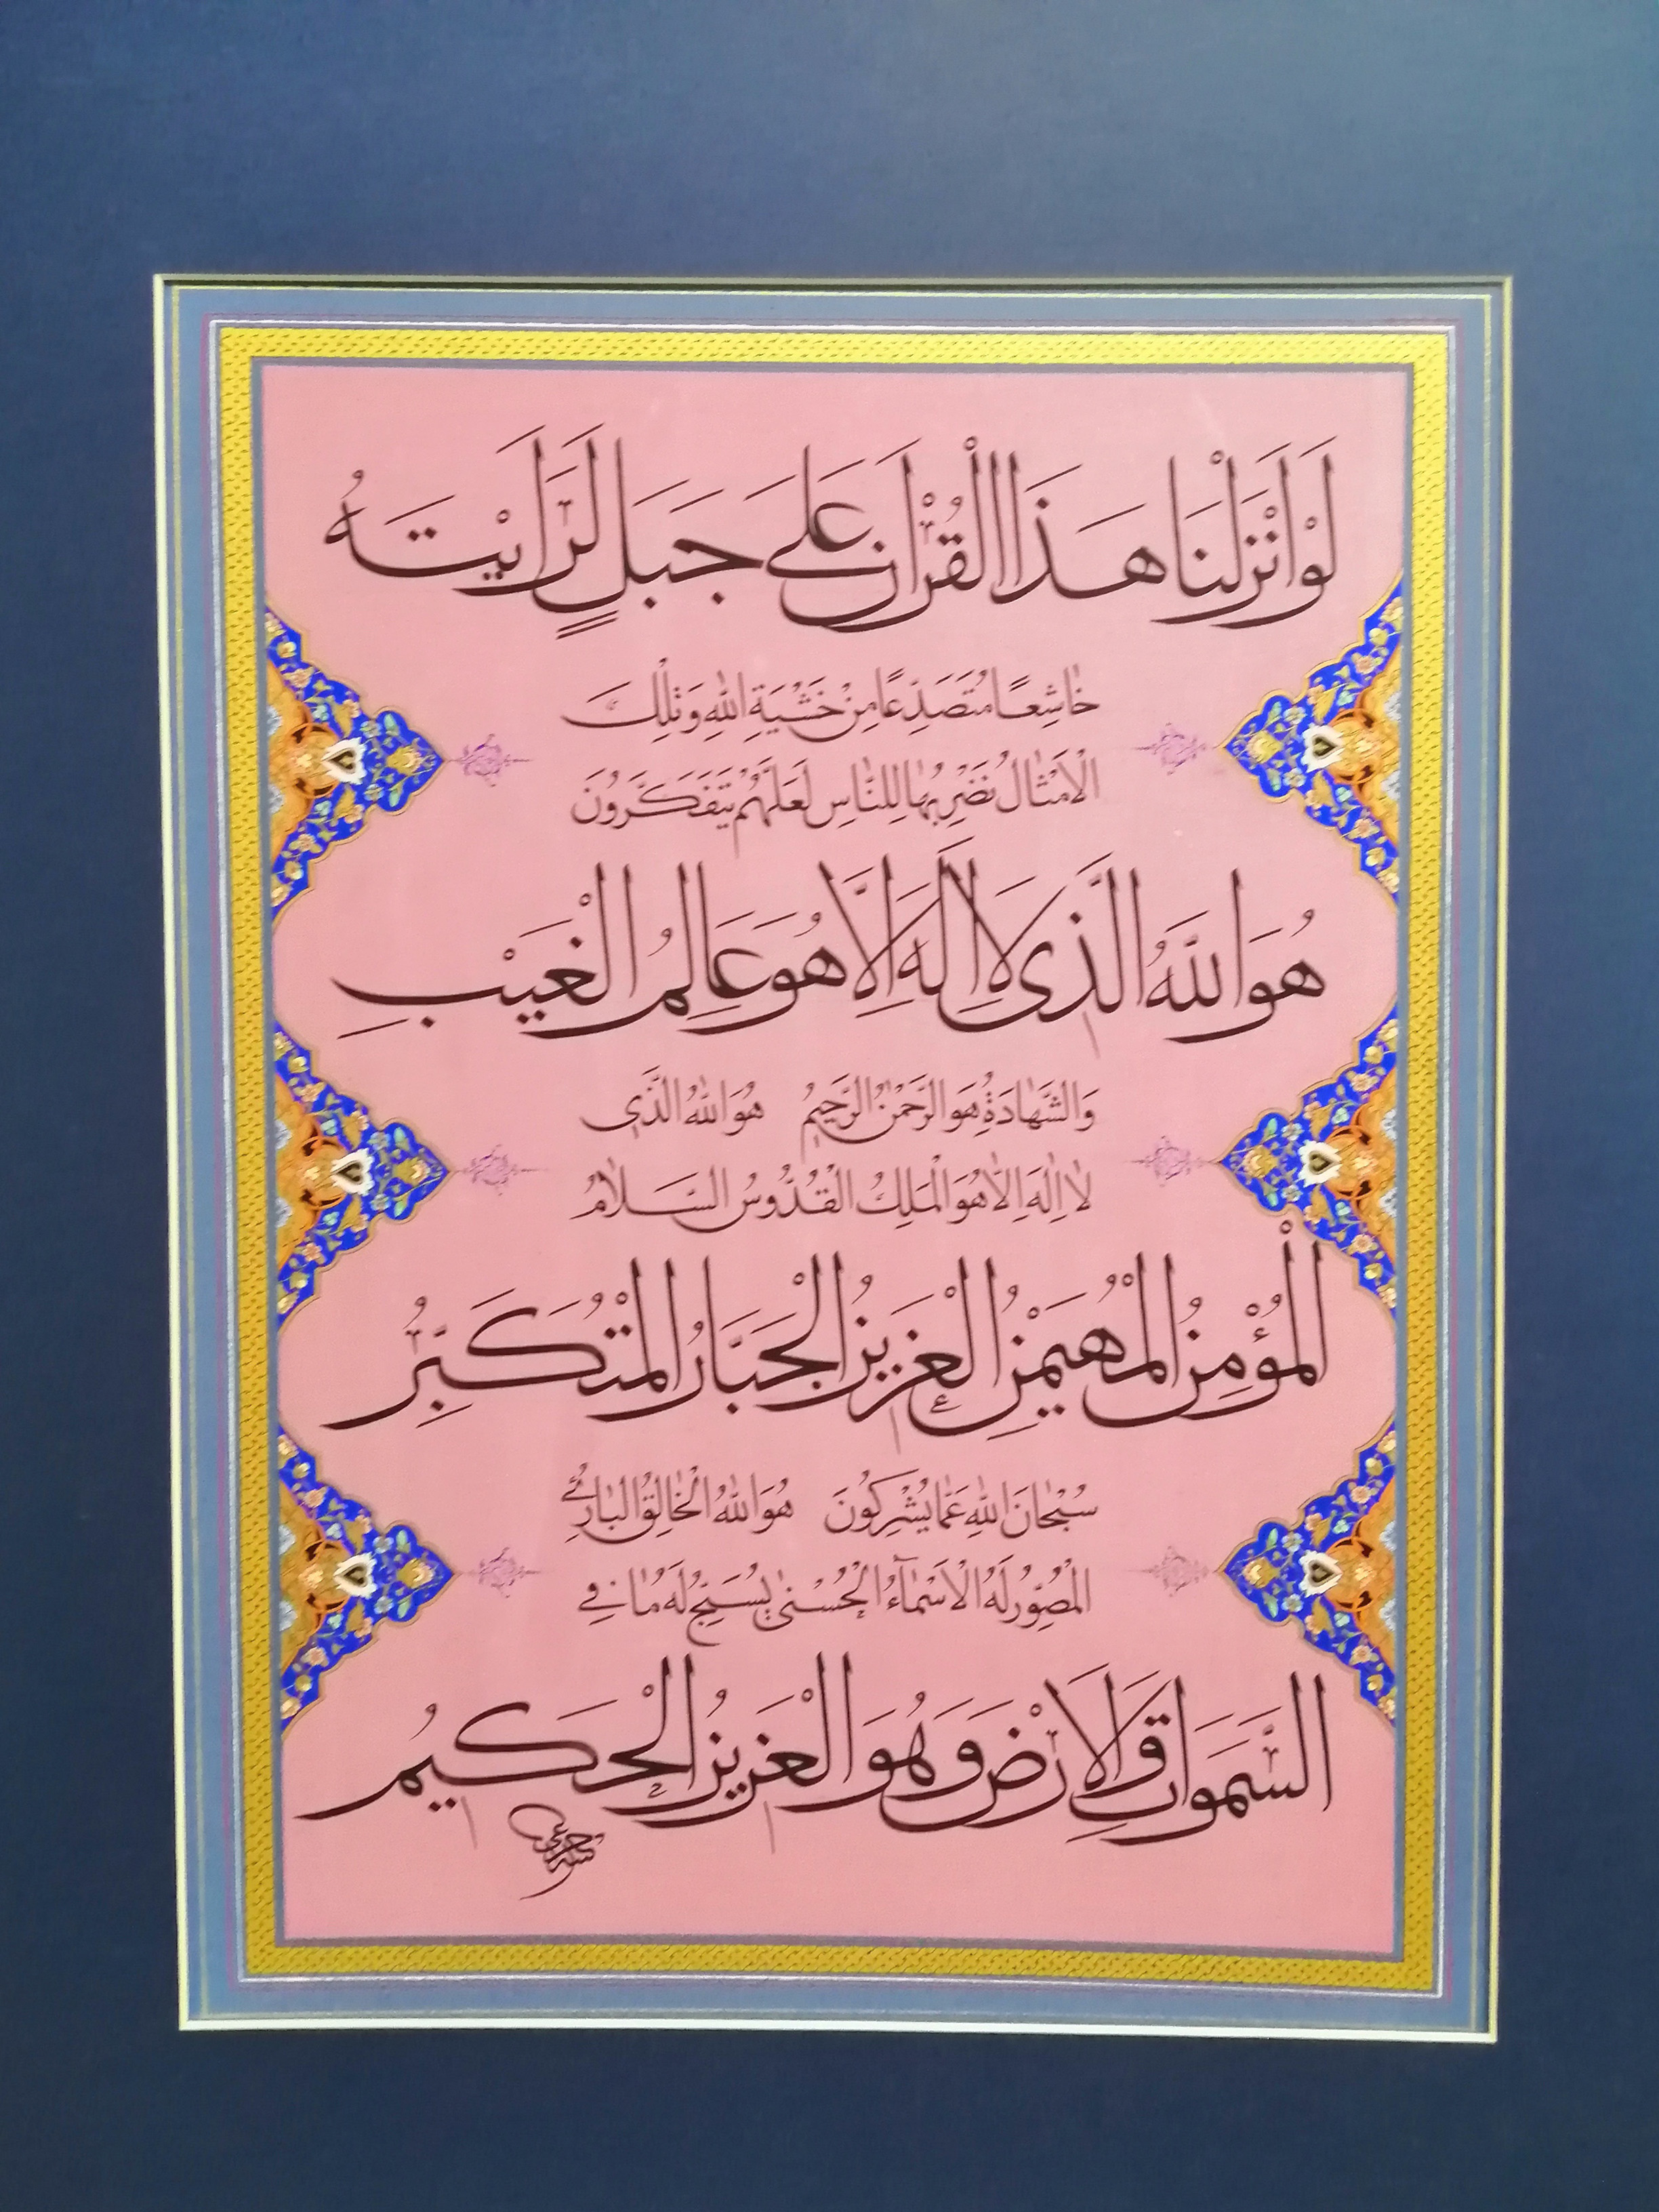 لَوْ اَنْزَلْنَا هَذَا الْقُرْاٰنَ عَلَى جَبَلٍ لَرَاَيْتَهُ
خَاشِعًا مُتَصَدِّعًا مِنْ خَشْيَةِ اللّٰهِ وَتِلْكَ
الْاَمْثَالُ نَضْرِبُهَا لِلنَّاسِ لَعَلَّهُمْ يَتَفَكَّرُونَ
هُوَ اللّٰهُ الَّذِى لَا اِلٰهَ اِلَّا هُوَ عَالِمُ الْغَيْبِ
وَالشَّهَادَةِ هُوَ الرَّحْمٰنُ الرَّحِيمُ هُوَ اللّٰهُ الَّذِى
لَا اِلٰهَ اِلَّا هُوَ الْمَلِكُ الْقُدُّوسُ السَّلَامُ
الْمُؤْمِنُ الْمُهَيْمِنُ الْعَزِيزُ الْجَبَّارُ الْمُتَكَبِّرُ
سُبْحَانَ اللّٰهِ عَمَّا يُشْرِكُونَ هُوَ اللّٰهُ الْخَالِقُ الْبَارِئُ
الْمُصَوِّرُ لَهُ الْاَسْمَاۤءُ الْحُسْنٰى يُسَبِّحُ لَهُ مَا فِى
السَّمَوَاتِ وَالْاَرْضِ وَهُوَ الْعَزِيزُ الْحَكِيمُ